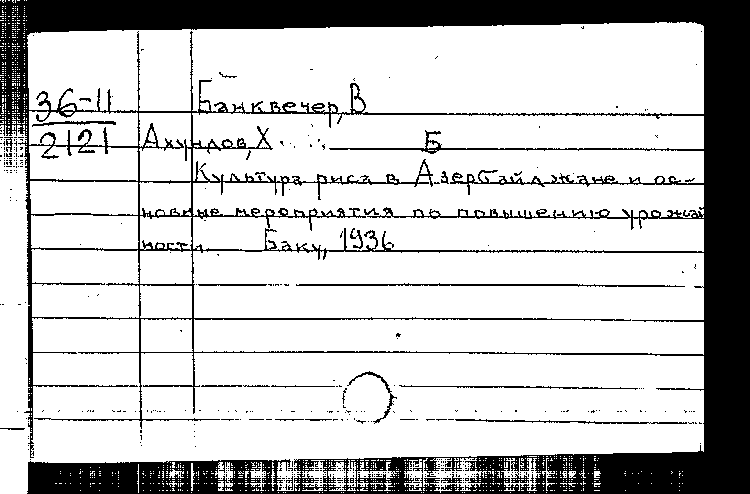 36-11
2121
Банквечер, В
Ахундов, Х.
Б
Культура риса в Азербайджане и ос-
новные мероприятия по повышению урожай
ности. Баку, 1936